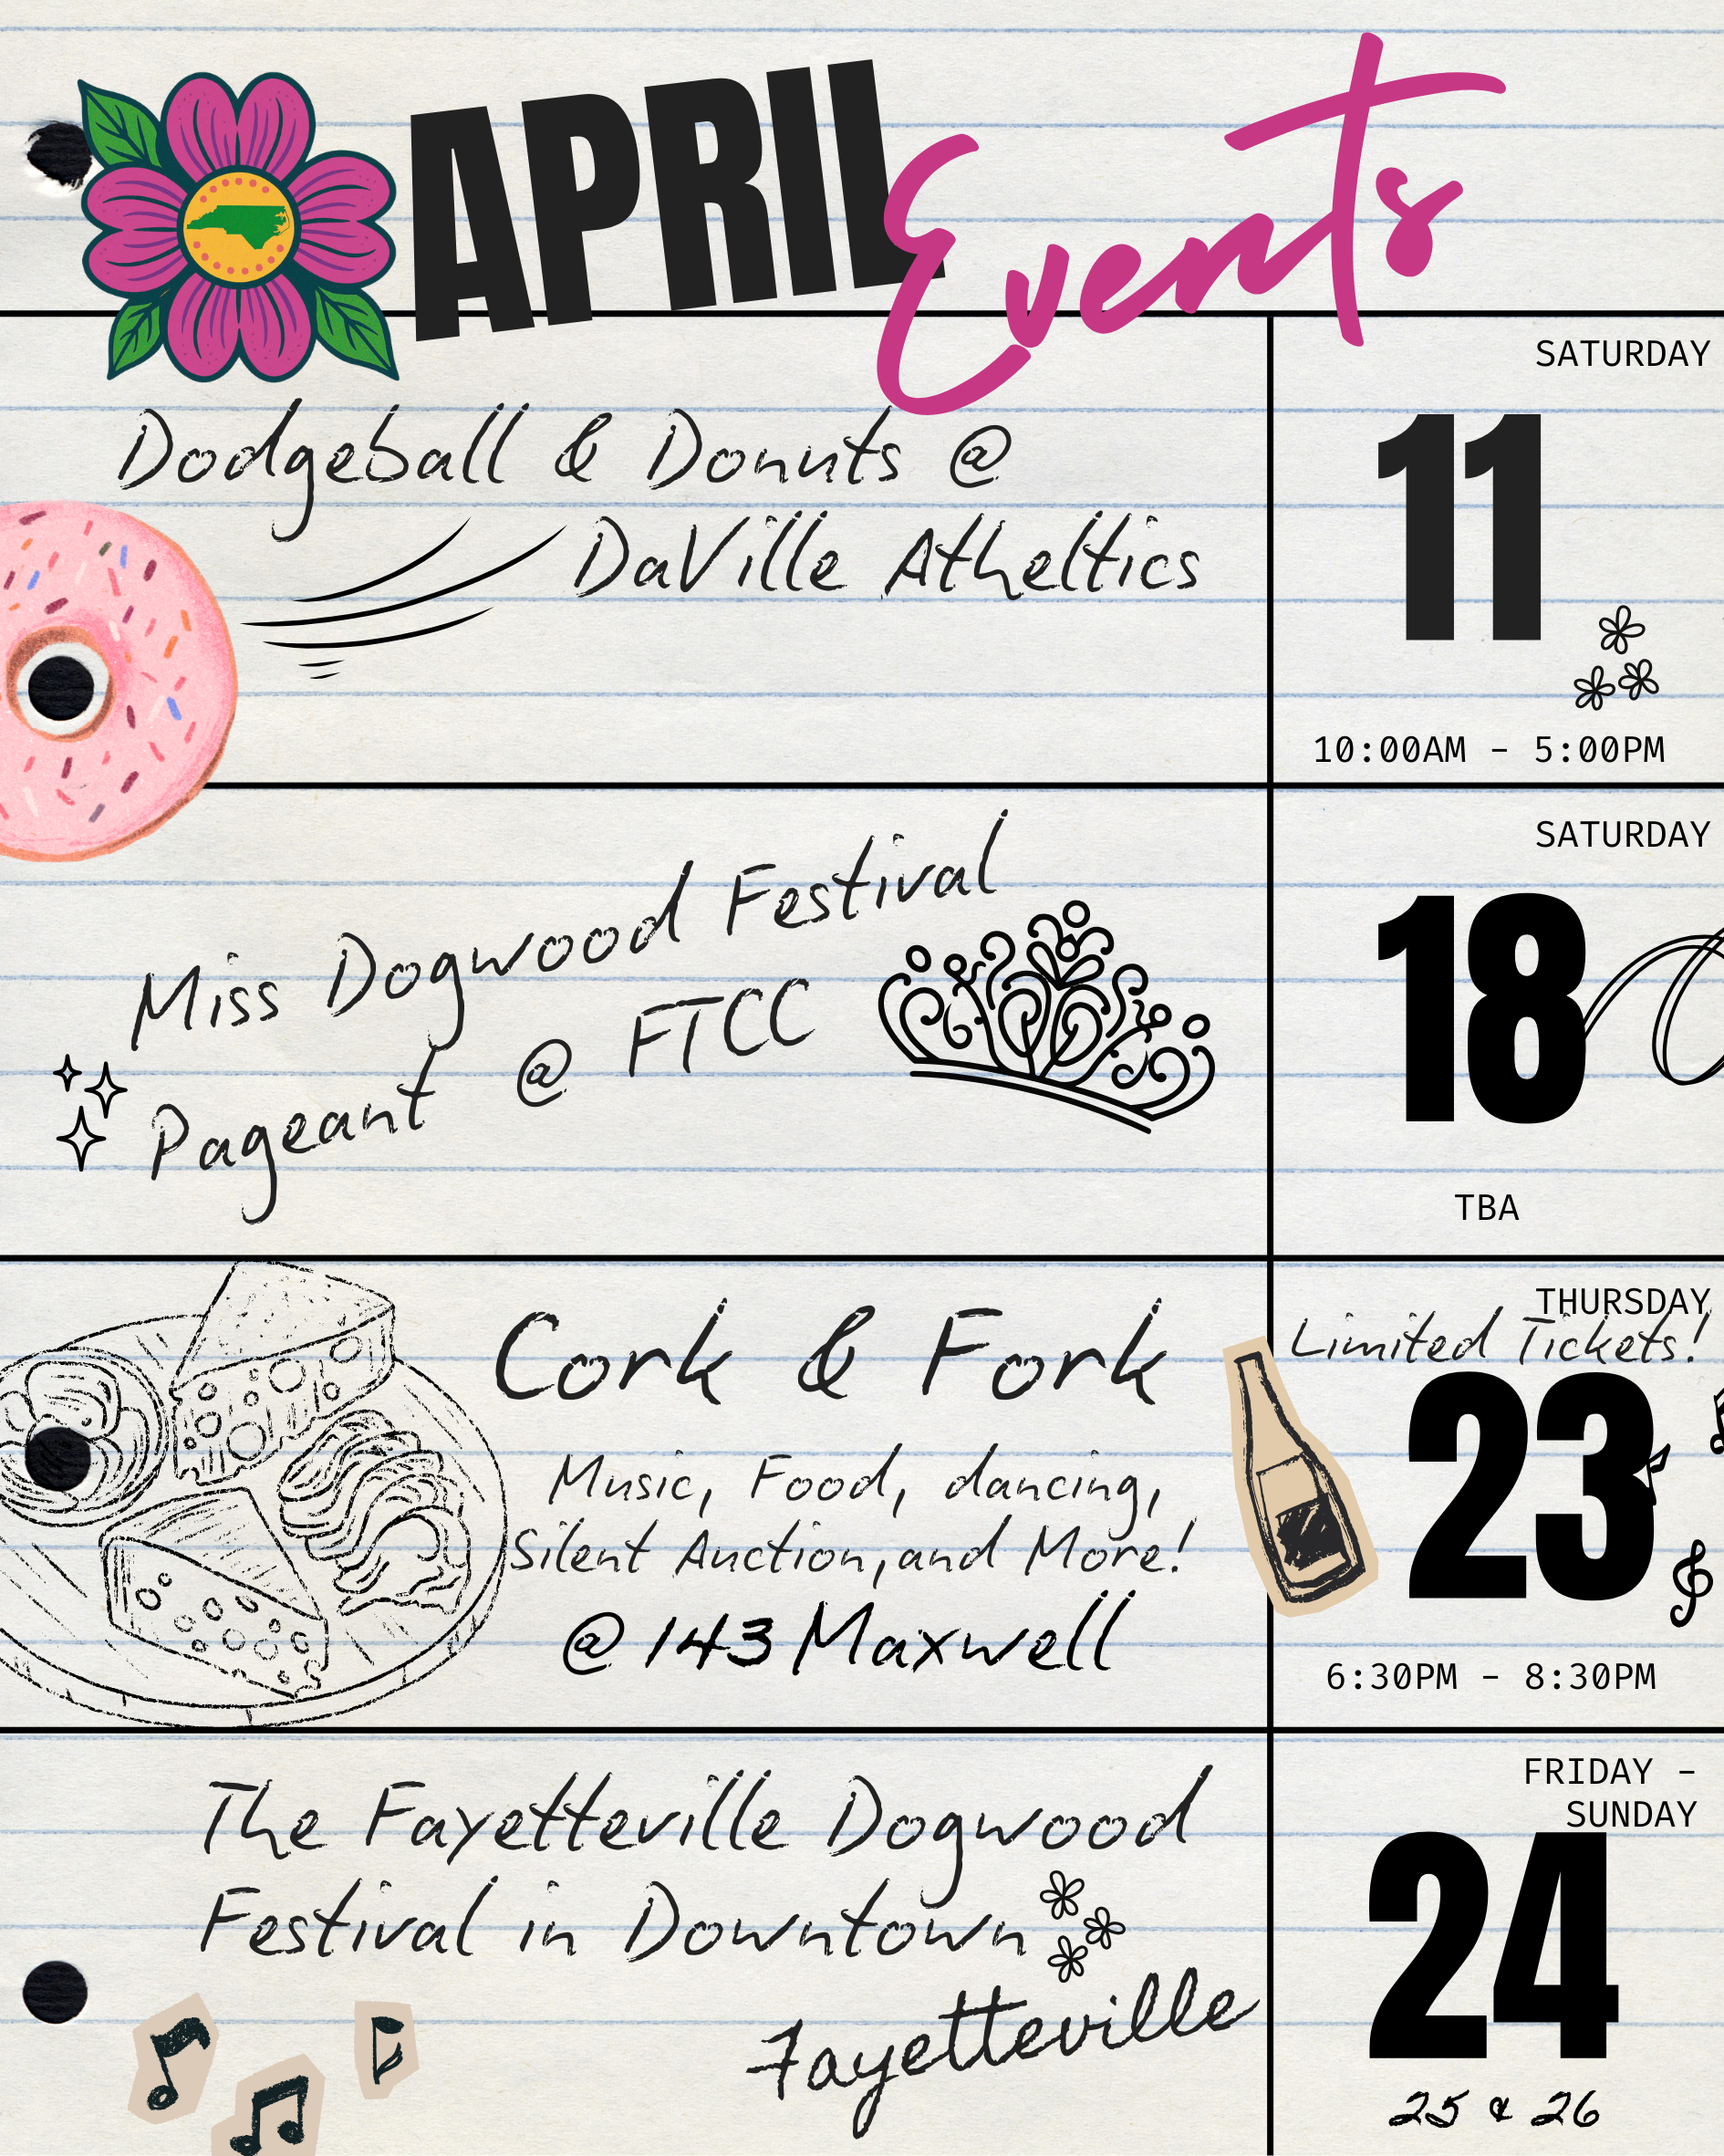 APRIL Events
SATURDAY
Dodgeball & Donuts @
DaVille Atheltics
11
10:00AM - 5:00PM
SATURDAY
Miss Dogwood Festival
Pageant @ FTCC
18
TBA
THURSDAY
Limited Tickets!
Cork & Fork
Music, Food, dancing,
Silent Auction, and More!
@ 143 Maxwell
23
6:30PM - 8:30PM
FRIDAY -
SUNDAY
The Fayetteville Dogwood
Festival in Downtown
Fayetteville
24
25 & 26